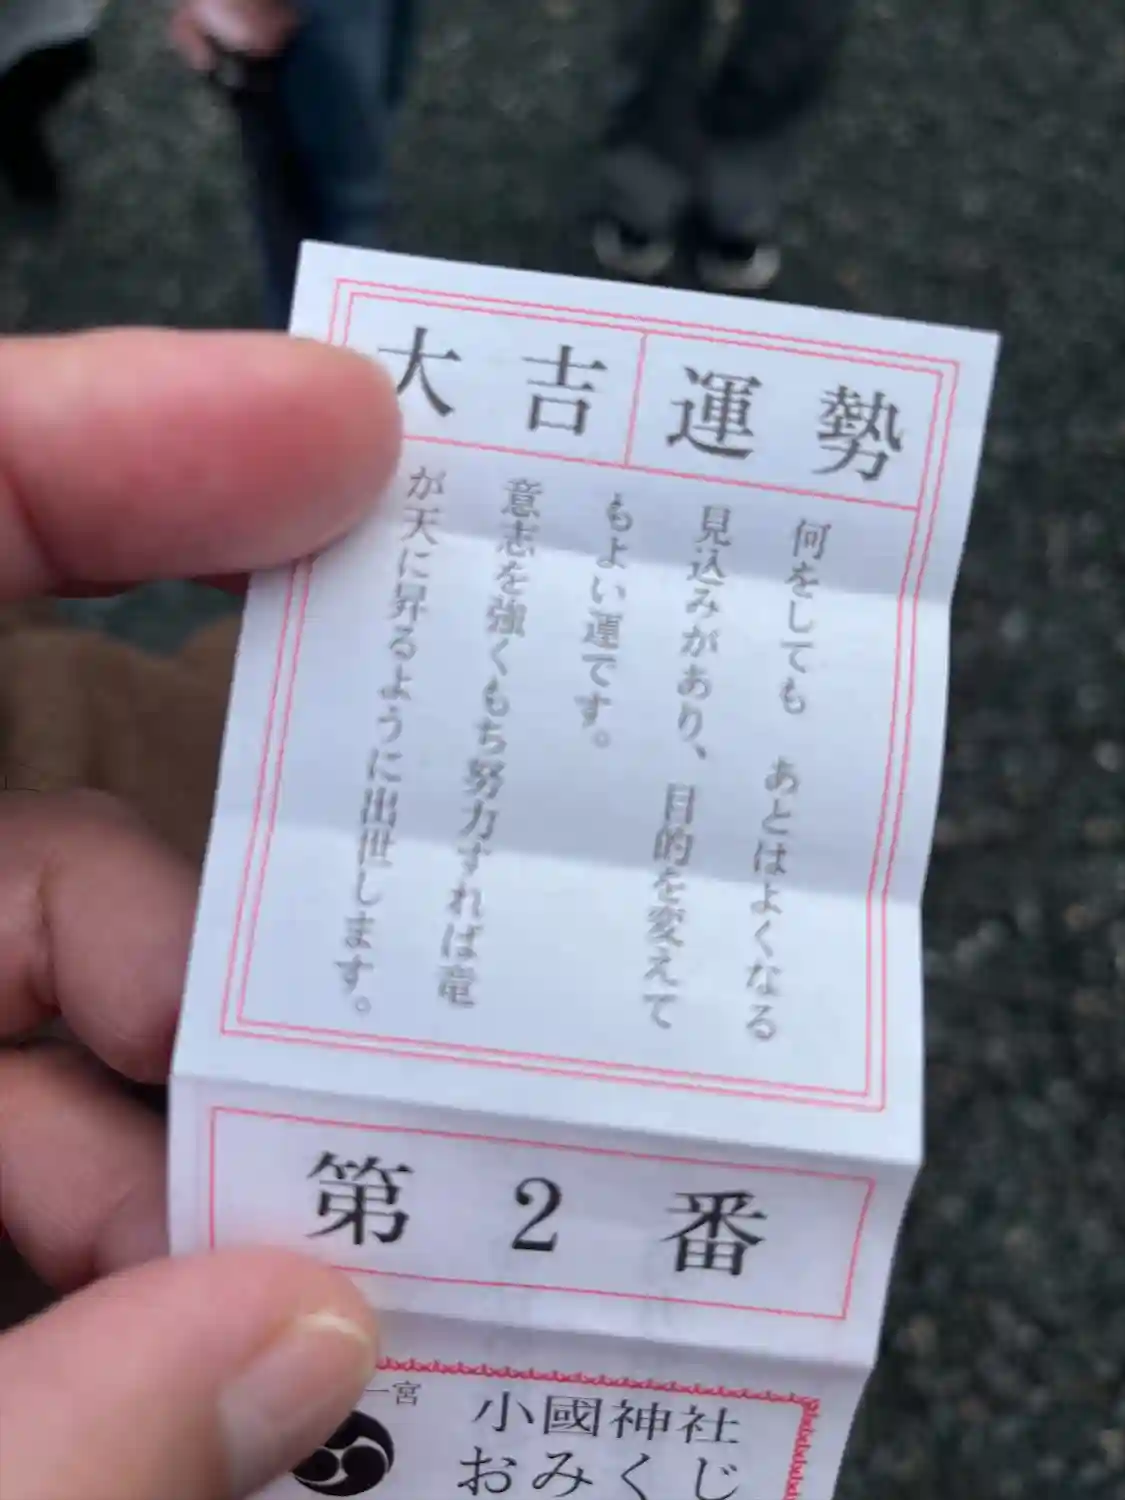 大吉
運勢
何をしても　あとはよくなる
見込みがあり、目的を変えて
もよい運です。
意志を強くもち努力すれば竜
が天に昇るように出世します。
第2番
一宮
小國神社
おみくじ